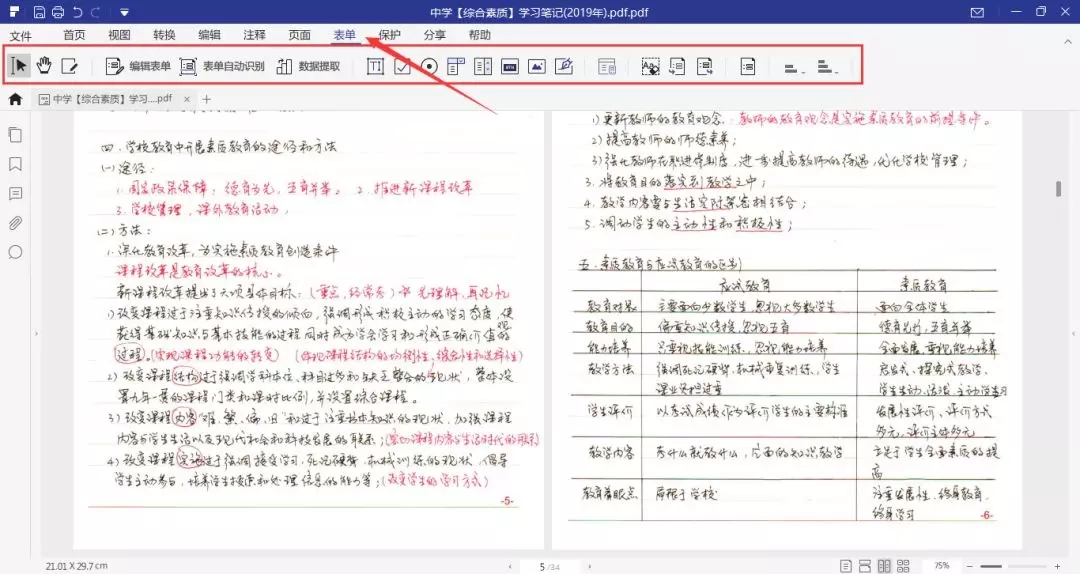 中学【综合素质】学习笔记(2019年).pdf.pdf
文件 首页 视图 转换 编辑 注释 页面 表单 保护 分享 帮助
编辑表单 表单自动识别 数据提取
中学【综合素质】学习....pdf
四、学校教育中开展素质教育的途径和方法
(一)途径:
1.国家政策保障:德育为先,五育并举。 2.推进新课程改革
3.学校管理、课外教育活动;
(二)方法:
1.深化教育改革,为实施素质教育创造条件
课程改革是教育改革的核心。
新课程改革提出了六项具体目标:(重点,经常考) 先理解,再记忆
1)改变课程过于注重知识传授的倾向,强调形成积极主动的学习态度,使
获得基础知识与基本技能的过程同时成为学会学习和形成正确价值观的
过程。(实现课程功能的转变) (体现课程结构的均衡性、综合性和选择性)
2)改变课程结构过于强调学科本位、科目过多和缺乏整合的现状,整体设
置九年一贯的课程门类和课时比例,并设置综合课程。
3)改变课程内容"难、繁、偏、旧"和过于注重书本知识的现状,加强课程
内容与学生生活以及现代社会和科技发展的联系;(密切课程内容与生活时代的联系)
4)改变课程实施过于强调接受学习、死记硬背、机械训练的现状,倡导
学生主动参与,培养学生搜集和处理信息的能力等;(改变学生的学习方式)
-5-
1)更新教师的教育观念,教师的教育观念是实施素质教育的前提条件。
2)提高教师的师德素养;
3)强化教师在职进修制度,进一步提高教师的待遇,优化学校管理;
3.将教育目的落实到教学之中;
4.教学内容要与生活实际紧密相结合;
5.调动学生的主动性和积极性;
五、素质教育与应试教育的区别
应试教育 素质教育
教育对象 主要面向少数学生,忽视大多数学生 面向全体学生
教育目的 偏重知识传授,忽视五育 德育为先,五育并举
能力培养 只重视技能训练,忽视能力培养 全面发展,重视能力培养
教学方法 强调死记硬背,机械重复训练,学生 启发式、探究式教学,
课业负担过重 学生生动、活泼、主动学习
学生评价 以考试成绩作为评价学生的主要标准 发展性评价,评价方式
多元,评价主体多元
教学内容 考什么就教什么,片面的知识教学 立足于学生全面素质的提
高
教育着眼点 局限于学校 注重发展性、终身教育、
终身学习
-6-
21.01 X 29.7 cm 5 /34 75%